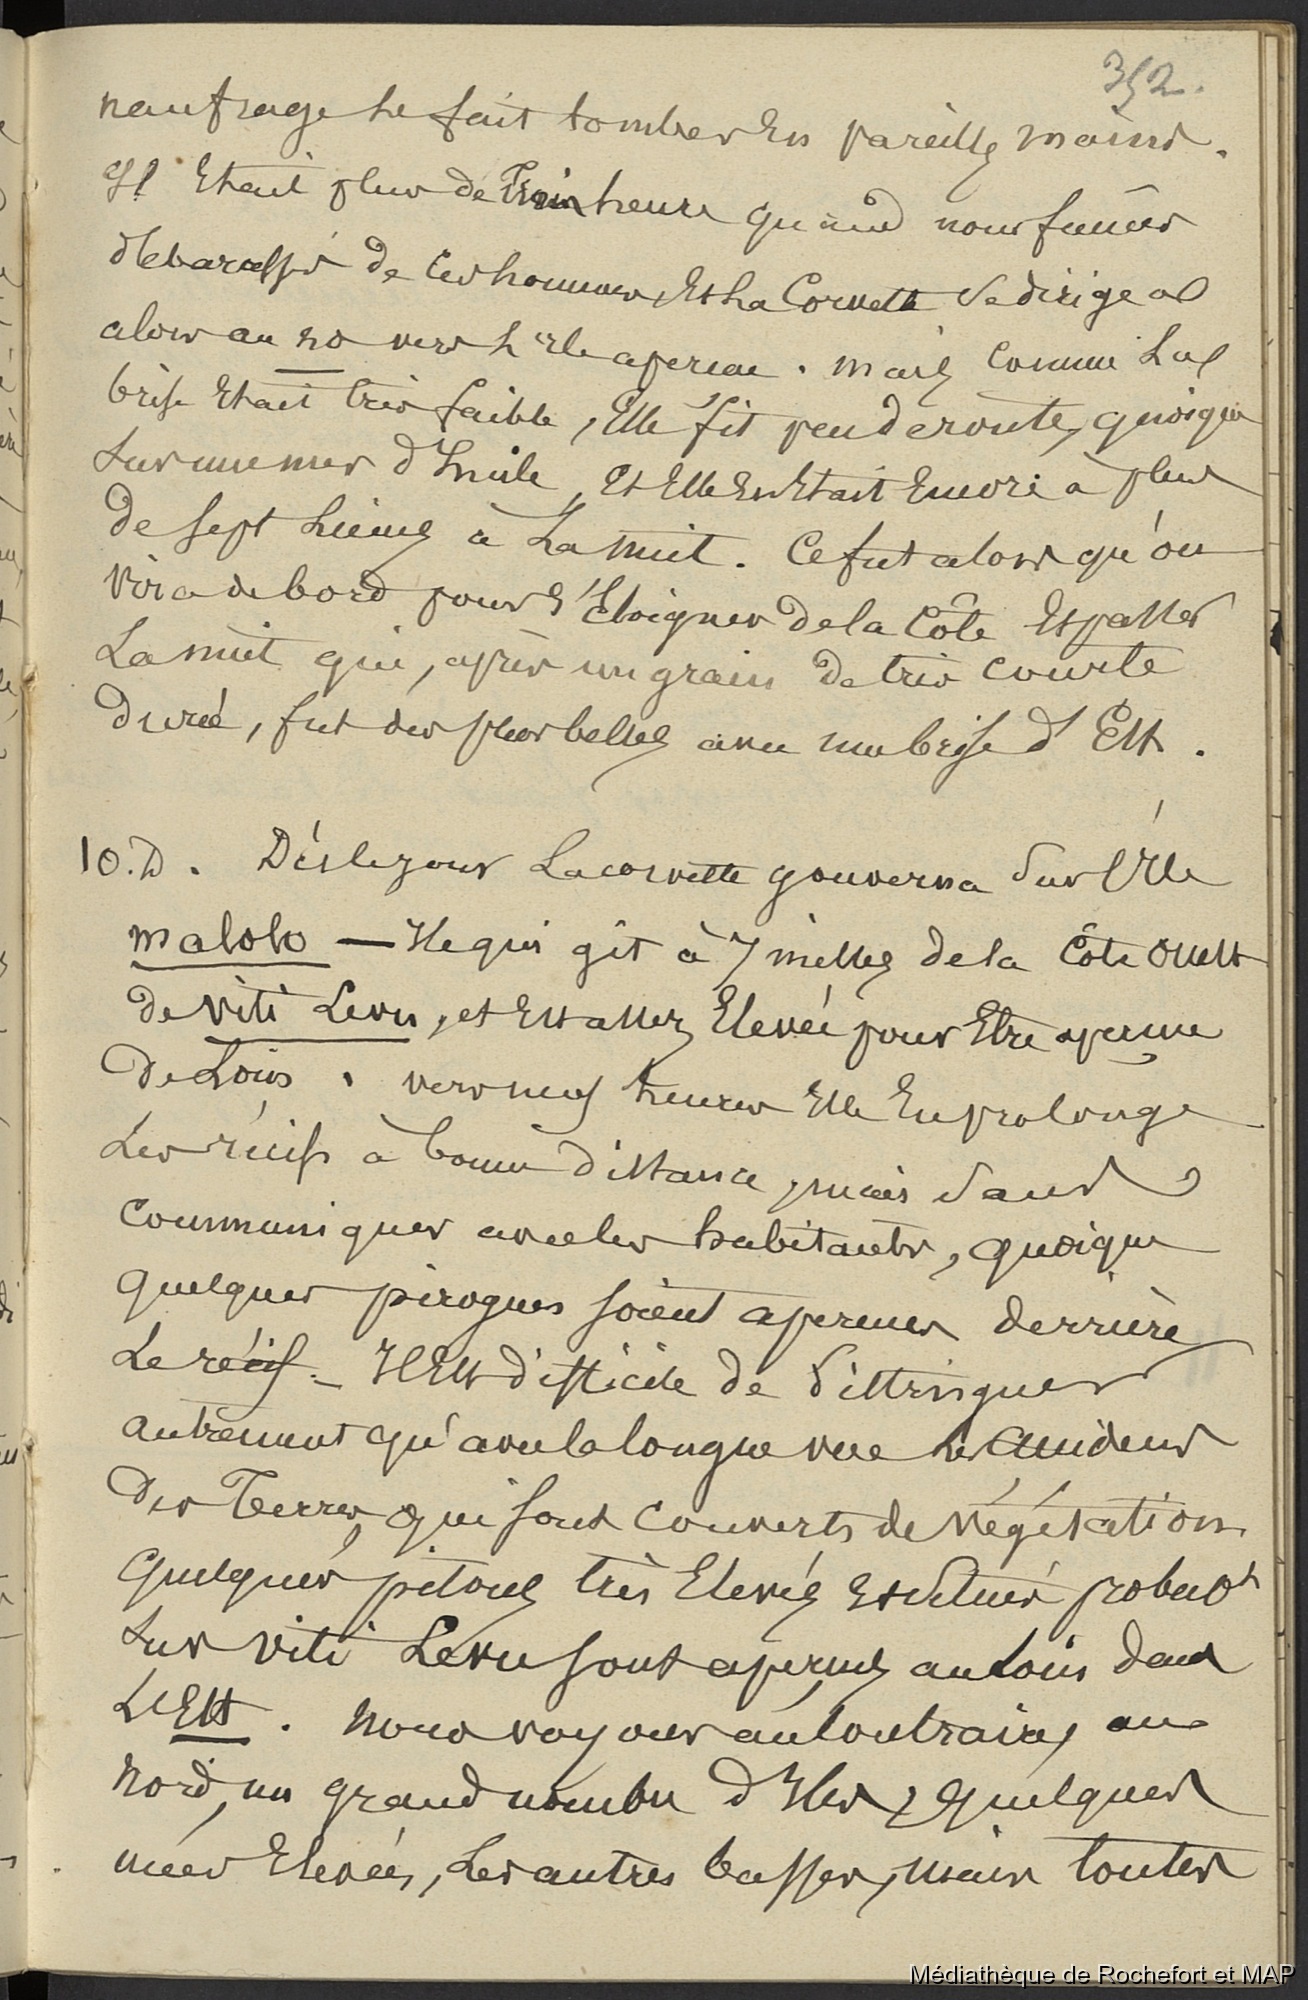 352.
naufrage le fait tomber en pareilles mains.
Il était plus de trois heures quand nous fumes
débarassés de ces hommes, et la Corvette se dirigea
alors au NO vers l'île aperçue. mais comme la
brise était très faible, elle fit peu de route, quoique
sur une mer d'huile, et elle en était encore à plus
de sept lieues à la nuit. Ce fut alors qu'on
vira de bord pour s'éloigner de la Côte et passer
la nuit qui, après un grain de très courte
durée, fut des plus belles avec une brise d'Est.
10. D. Dès le jour la corvette gouverna sur l'Ile
malolo — Ile qui gît à 7 milles de la Côte Ouest
de Viti Levu, et est assez élevée pour être aperçue
de loin. vers neuf heures elle en prolonge
les récifs à bonne distance, mais sans
communiquer avec les habitants, quoique
quelques pirogues soient aperçues derrière
le récif. — Il est difficile de distinguer
autrement qu'avec la longue vue les accidens
des terres, qui sont couverts de végétation.
Quelques pitons très élevés et situés probabt
sur viti Levu sont aperçus au loin dans
l'Est. nous voyons au contraire, au
nord, un grand nombre d'Iles, quelques
unes élevées, les autres basses, mais toutes
Médiathèque de Rochefort et MAP